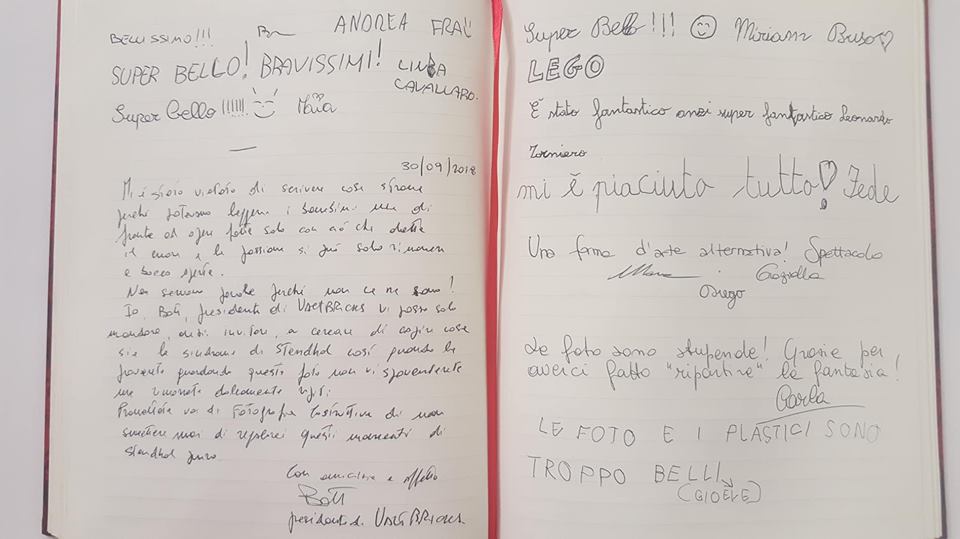 BELLISSIMO!!!
ANDREA FRAU
SUPER BELLO! BRAVISSIMI!
LINDA
CAVALLARO.
Super bello!!!!!!
30/09/2018
Mi è stato vietato di scrivere cose strane
perché potranno leggere i bambini ma di
fronte ad opere fatte solo con ciò che detta
il cuore e la passione si può solo rimanere
a bocca aperta.
Non servono parole perché non ce ne sono!
Io, Bott, presidente di VACTBRICKS vi posso solo
mandare, anzi invitare, a cercare di capire cosa
sia la sindrome di Stendhal così quando la
proverete guardando queste foto non vi spaventerete
ma rimarrete dolcemente rapiti.
Promettete voi di Fotografia Costruttiva di non
smettere mai di regalarci questi momenti di
Stendhal puro.
Con amicizia e affetto
Bott
presidente di
Super Bello!!! Miriam Buso
LEGO
È stato fantastico anzi super fantastico Leonardo
Torniero
mi è piaciuto tutto! Fede
Una forma d'arte alternativa! Spettacolo
Graziella
Osego
Le foto sono stupende! Grazie per
averci fatto "ripartire" la fantasia!
Carla
LE FOTO E I PLASTICI SONO
TROPPO BELLI
(GIOELE)